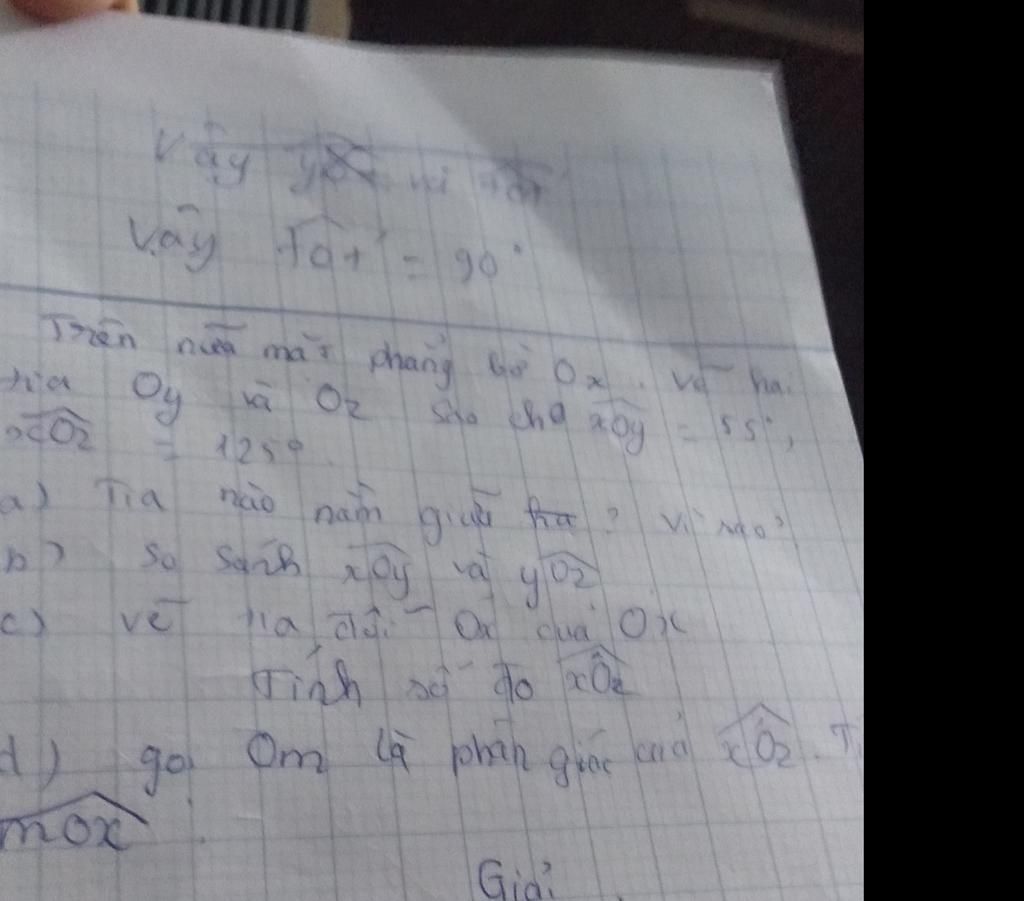 Vậy
Vậy tOt' = 90°
Trên nửa mặt phẳng bờ Ox. Vẽ hai
tia Oy và Oz sao cho xOy = 55°,
xOz = 125°.
a) Tia nào nằm giữa ? Vì sao?
b) So sánh xOy và yOz
c) vẽ tia đối Ox' của Ox
Tính số đo x'Oz
d) gọi Om là phân giác của x'Oz. T
mOx
Giải